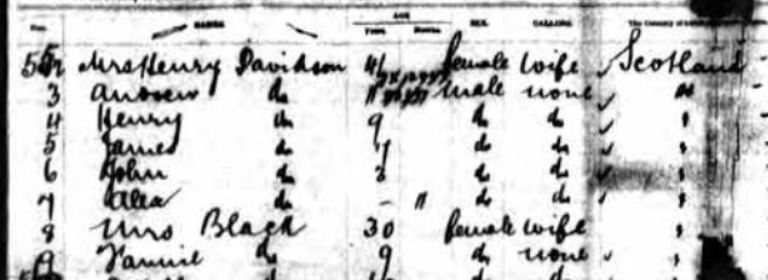 NAMES AGE SEX. CALLING.
Years Months
Mrs Henry Davidson 41 female wife Scotland
3 Andrew do 11 male none "
4 Henry do 9 do do "
5 James do 7 do do "
6 John do 3 do do "
7 Alex do - 11 do do "
8 Mrs Black 30 female wife "
9 Fannie do 9 do none "